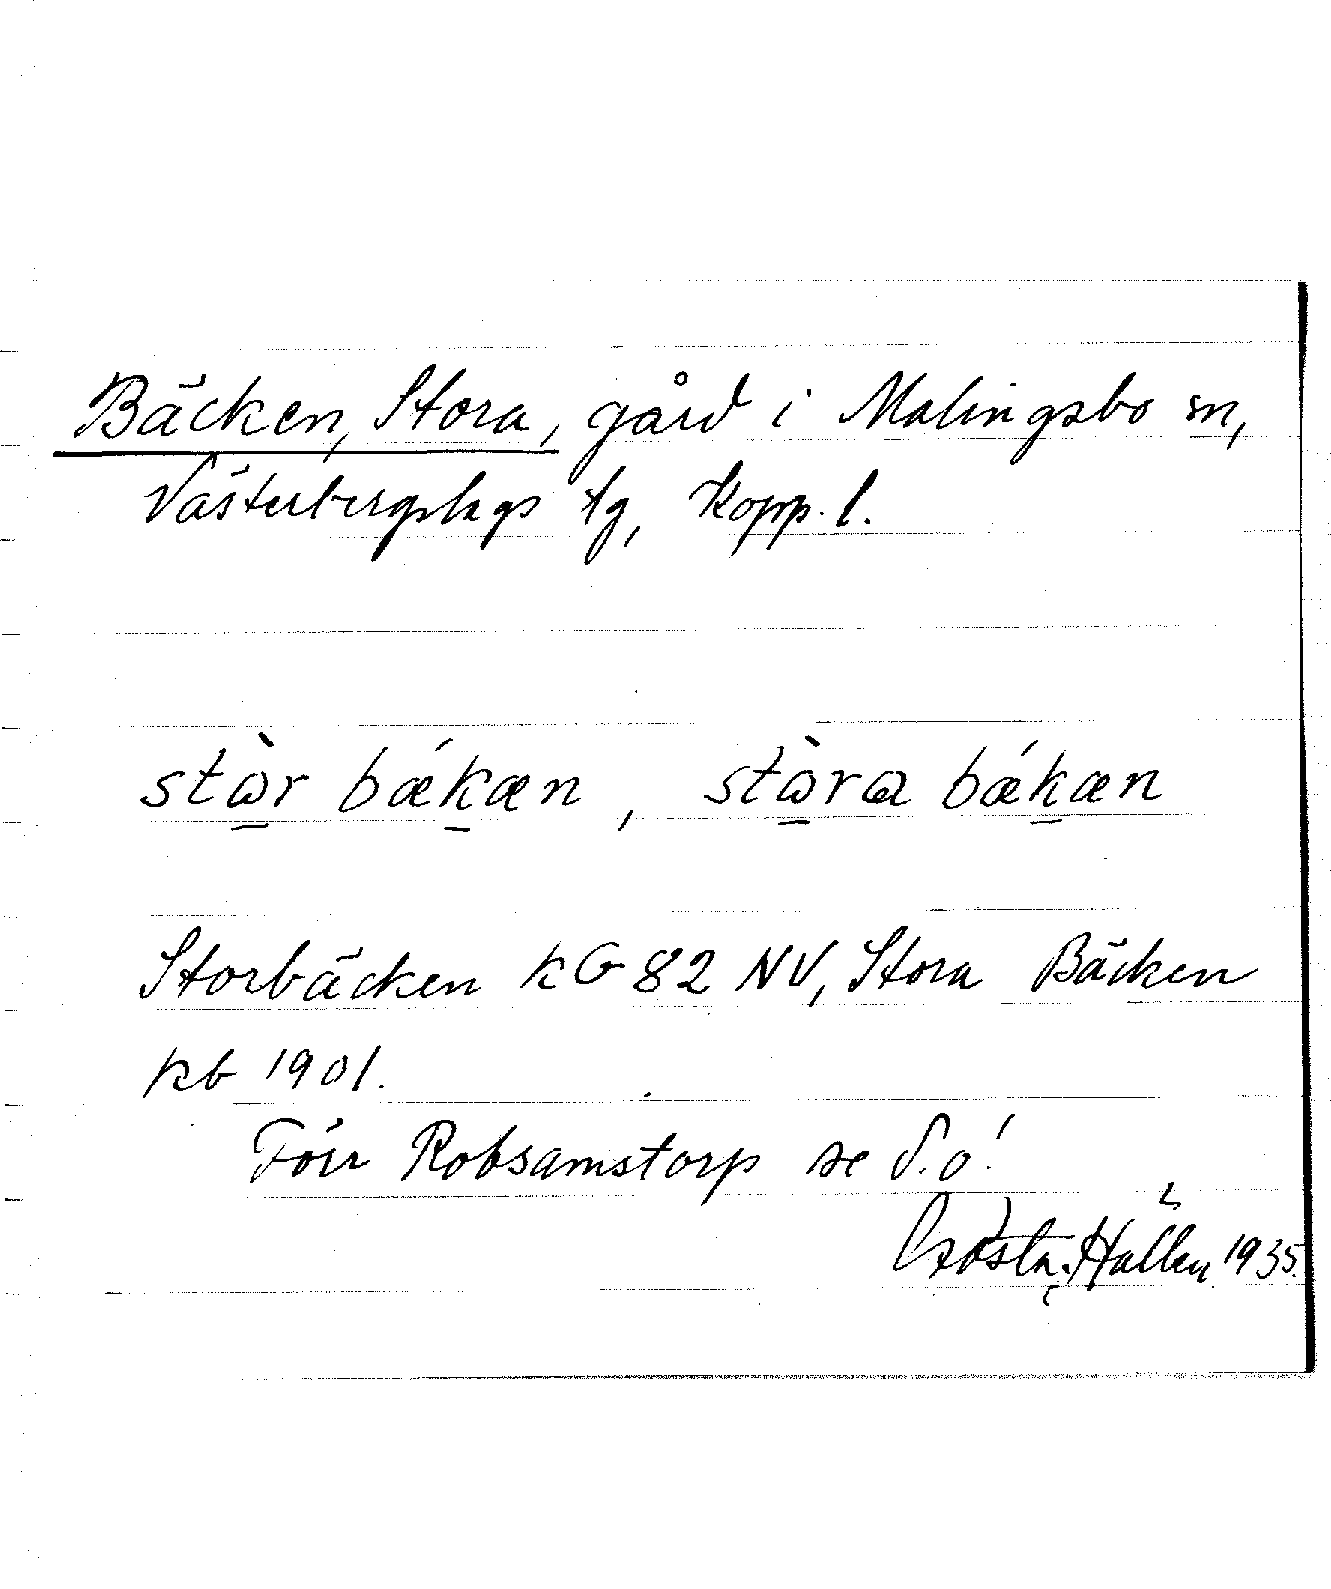 Bäcken, Stora, gård i Malingsbo sn,
Västerbergslags tg, Kopp. l.
stὼ̲r bǽk̲æn, stὼ̲ra bǽk̲æn
Storbäcken kG 82 NV, Stora Bäcken
kb 1901.
Förr Robsamstorp se d.o!
Gösta Hallén 1935.